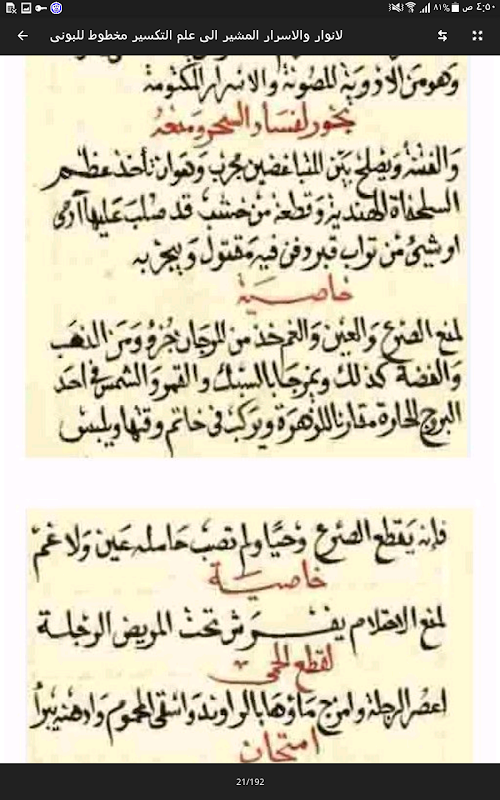 ٤:٥٠ ص ٨١%
لانوار والاسرار المشير الى علم التكسير مخطوط للبونى
وهو من الادوية المصونة والاسرار المكتومة
بخور لفساد السحر ومنعه
والفتنة ويصلح بين المتباغضين مجرب وهو ان تأخذ عظم
السلحفاة الهندية وقطعة من خشب قد صلب عليها آدمى
او شيئ من تراب قبر دفن فيه مقتول ويبخر به
خاصية
لمنع الصرع والعين والغم خذ من المرجان جزؤ ومن الذهب
والفضة كذلك ويمزجا بالسبك والقمر والشمس فى احد
البروج الحارة مقارنا للزهرة ويركب فى خاتم وقتها ويلبس
فإنه يقطع الصرع وحيًا ولم تصب حامله عين ولا غم
خاصية
لمنع الاحتلام يفرش تحت المريض الرجلة
لقطع الحمى
اعصر الرجلة وامزج ماؤها بالراوند واسقى المحموم وادهنه يبرأ
امتحان
21/192